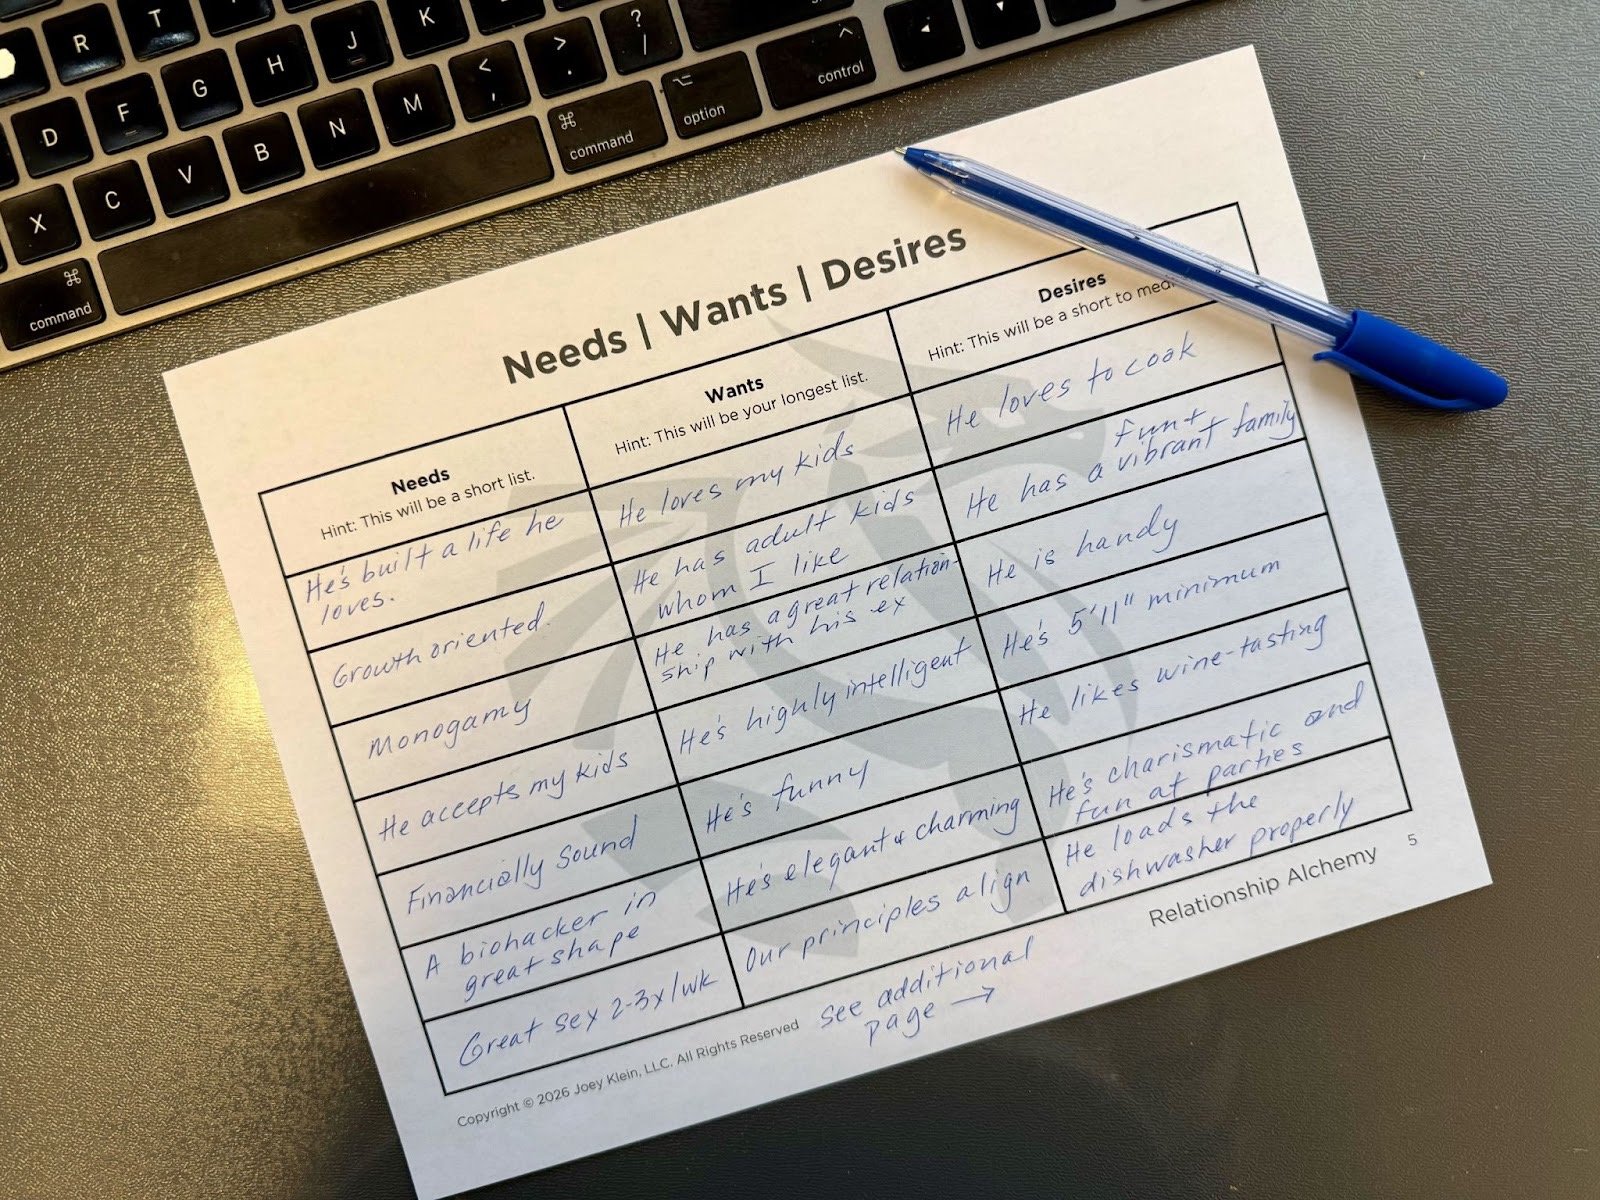 R T J K ? /
D F G H > . ^ control
X C V B N M < , ⌘ command ⌥ option
⌘ command
Needs | Wants | Desires
Needs
Hint: This will be a short list.
He's built a life he
loves.
Growth oriented.
Monogamy
He accepts my kids
Financially Sound
A biohacker in
great shape
Great sex 2-3x/wk
Wants
Hint: This will be your longest list.
He loves my kids
He has adult kids
whom I like
He has a great relation-
ship with his ex
He's highly intelligent
He's funny
He's elegant & charming
Our principles align
Desires
Hint: This will be a short to
He loves to cook
He has a fun + vibrant family
He is handy
He's 5'11" minimum
He likes wine-tasting
He's charismatic and
fun at parties
He loads the
dishwasher properly
See additional
page →
Copyright © 2026 Joey Klein, LLC. All Rights Reserved
Relationship Alchemy 5